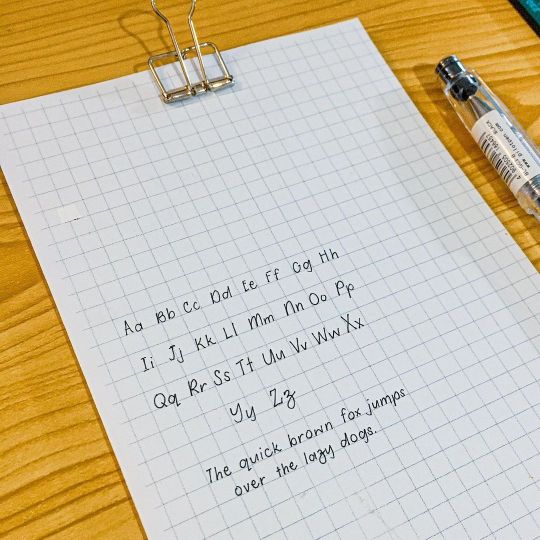 Aa Bb Cc Dd Ee Ff Gg Hh
Ii Jj Kk Ll Mm Nn Oo Pp
Qq Rr Ss Tt Uu Vv Ww Xx
Yy Zz
The quick brown fox jumps
over the lazy dogs.
BLACK